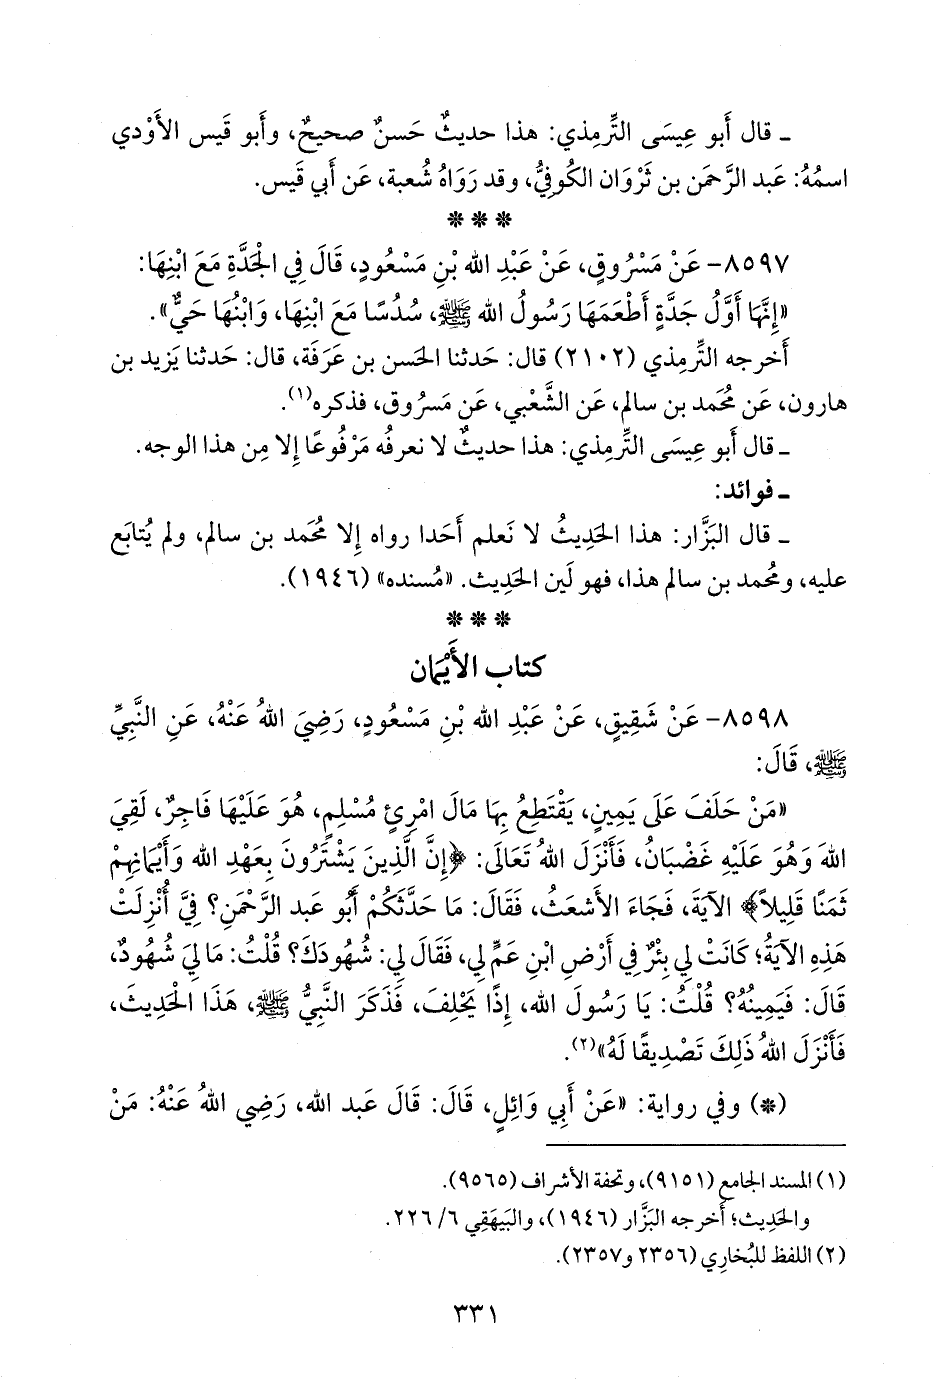 ـ قال أَبو عِيسَى التِّرمِذي: هذا حديثٌ حَسنٌ صحيحٌ، وأَبو قَيس الأَوْدي
اسمُهُ: عَبد الرَّحمَن بن ثَرْوَان الكُوفِيُّ، وقد رَوَاهُ شُعبة، عَن أَبي قَيس.
* * *
٨٥٩٧- عَنْ مَسْرُوقٍ، عَنْ عَبْدِ الله بْنِ مَسْعُودٍ، قَالَ فِي الْجَدَّةِ مَعَ ابْنِهَا:
«إِنَّهَا أَوَّلُ جَدَّةٍ أَطْعَمَهَا رَسُولُ الله ﷺ، سُدُسًا مَعَ ابْنِهَا، وَابْنُهَا حَيٌّ».
أَخرجه التِّرمِذي (٢١٠٢) قال: حَدثنا الحَسن بن عَرَفَة، قال: حَدثنا يَزيد بن
هارون، عَن مُحَمد بن سالم، عَن الشَّعْبي، عَن مَسرُوق، فذكره(١).
ـ قال أَبو عِيسَى التِّرمِذي: هذا حديثٌ لا نعرفُه مَرْفُوعًا إِلا مِن هذا الوجه.
ـ فوائد:
ـ قال البَزَّار: هذا الحَدِيثُ لا نَعلم أَحدا رواه إِلا مُحَمد بن سالم، ولم يُتابَع
عليه، ومُحمد بن سالم هذا، فهو لَين الحَدِيث. «مُسنده» (١٩٤٦).
* * *
كتاب الأَيْمَان
٨٥٩٨- عَنْ شَقِيقٍ، عَنْ عَبْدِ الله بْنِ مَسْعُودٍ، رَضِيَ اللهُ عَنْهُ، عَنِ النَّبِيِّ
ﷺ، قَالَ:
«مَنْ حَلَفَ عَلَى يَمِينٍ، يَقْتَطِعُ بِهَا مَالَ امْرِئٍ مُسْلِمٍ، هُوَ عَلَيْهَا فَاجِرٌ، لَقِيَ
اللهَ وَهُوَ عَلَيْهِ غَضْبَانُ، فَأَنْزَلَ اللهُ تَعَالَى: ﴿إِنَّ الَّذِينَ يَشْتَرُونَ بِعَهْدِ الله وَأَيْمَانِهِمْ
ثَمَنًا قَلِيلاً﴾ الآيَةَ، فَجَاءَ الأَشعَثُ، فَقَالَ: مَا حَدَّثَكُمْ أَبُو عَبد الرَّحْمَنِ؟ فِيَّ أُنْزِلَتْ
هَذِهِ الآيَةُ؛ كَانَتْ لِي بِئْرٌ فِي أَرْضِ ابْنِ عَمٍّ لِي، فَقَالَ لِي: شُهُودَكَ؟ قُلْتُ: مَا لِيَ شُهُودٌ،
قَالَ: فَيَمِينُهُ؟ قُلْتُ: يَا رَسُولَ الله، إِذًا يَحْلِفَ، فَذَكَرَ النَّبِيُّ ﷺ، هَذَا الْحَدِيثَ،
فَأَنْزَلَ اللهُ ذَلِكَ تَصْدِيقًا لَهُ»(٢).
(*) وفي رواية: «عَنْ أَبِي وَائِلٍ، قَالَ: قَالَ عَبد الله، رَضِي اللهُ عَنْهُ: مَنْ
(١) المسند الجامع (٩١٥١)، وتحفة الأشراف (٩٥٦٥).
والحَدِيث؛ أَخرجه البَزَّار (١٩٤٦)، والبَيهَقِي ٦/ ٢٢٦.
(٢) اللفظ للبُخارِي (٢٣٥٦ و٢٣٥٧).
٣٣١